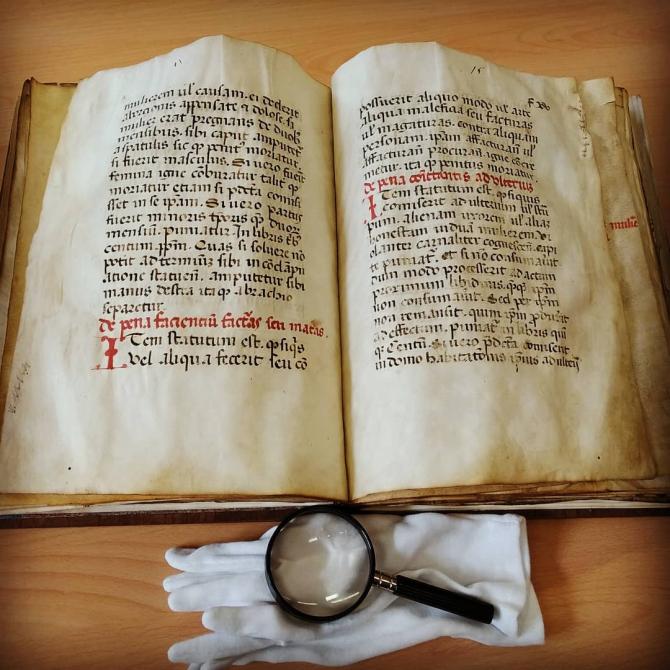 mulierem ul causam. ei dederit
abortionis appensate & dolose. si
mulier erat pregnans de duob;
mensibus. sibi caput amputet
a spatulis sic q penit moriatur.
si fuerit masculus. Si uero fuerit
femina igne coburatur talit q
moriatur etiam si pdcta comisi
sset in se ipsam. Si uero partus
fuerit minoris tpris q duor
mensium. puniatur. In libris
centum. ppim. Quas si soluere no
potit ad terminu sibi in
atione statuen. amputetur sibi
manus destra ita q a brachio
separetur.
de pena facientiu factas seu maias.
ITem statutum est. q siqs
vel aliqua fecerit seu co
posuerit aliquo modo ul arte
aliqua maleficia seu facturas
ul magaturas. contra aliquam
personam. ipsam affacturan ul
affacturari procuran igne
metur. ita q penitus moriatur
de pena adulteriu
ITem statutum est. q siquis
comiserit adulterium ul
pum. alienam uxorem ul alias
honestam uidua mulierem ui
olenter carnaliter cognoscen. capi
te puniat. Et si no consumauit
dum modo processerit ad actum
proximum libidinis. q q ipm
non consumauit. Sed per ipm
non remansit. quin ipm pduceret
ad effectum. Puniat in libris qui
q Centu. Si uero pdcta comiserit
in domo habitationis ipius adulteri
mulie